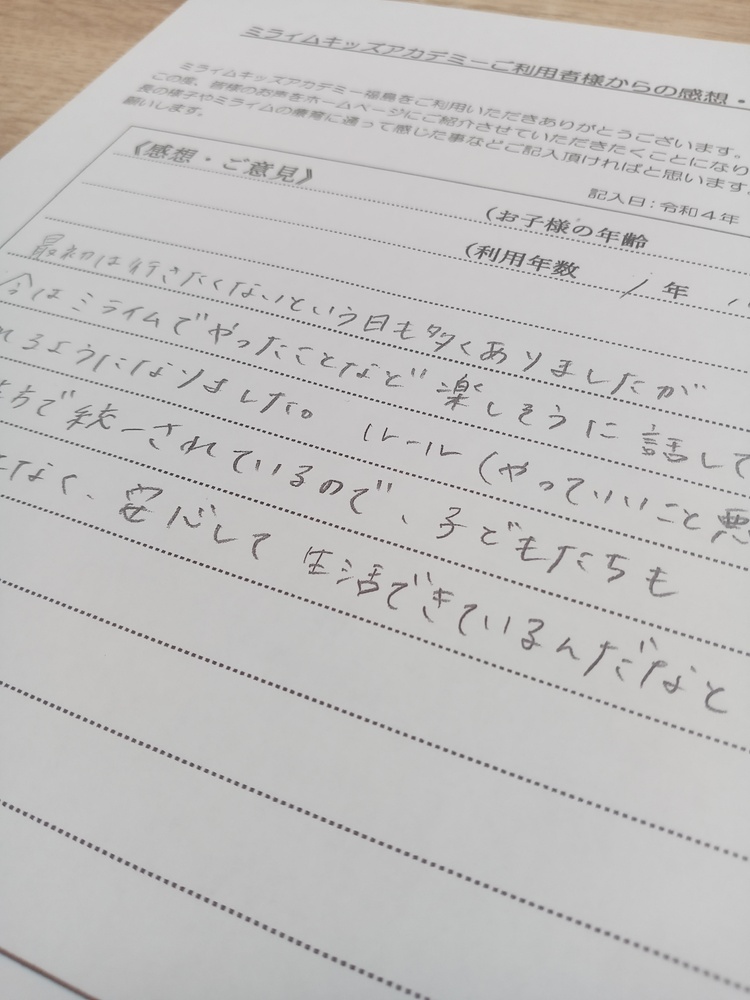 ミライムキッズアカデミーご利用者様からの感想・
ミライムキッズアカデミー福島をご利用いただきありがとうございます。
この度、皆様のお声をホームページにご紹介させていただきたくことになり
長の様子やミライムの療育に通って感じた事などご記入頂ければと思います
願いします。
記入日：令和４年
《感想・ご意見》
（お子様の年齢
（利用年数 1 年
最初は行きたくないという日も多くありましたが
今はミライムでやったことなど楽しそうに話して
れるようになりました。 ルール（やっていいこと悪
方で統一されているので、子どもたちも
なく、安心して生活できているんだなと